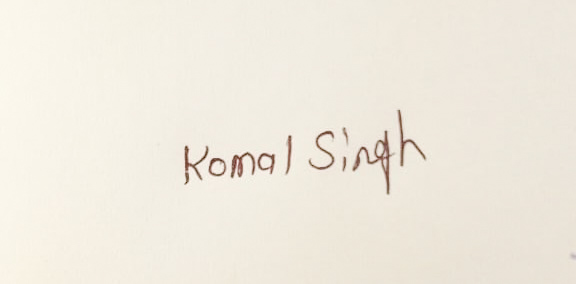 Komal Singh